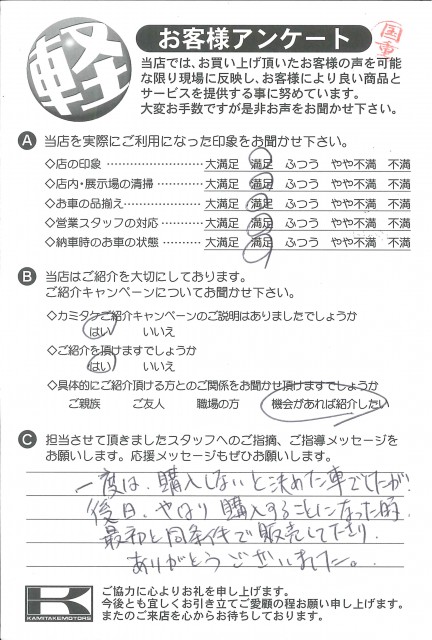 軽
お客様アンケート
国東
当店では、お買い上げ頂いたお客様の声を可能
な限り現場に反映し、お客様により良い商品と
サービスを提供する事に努めています。
大変お手数ですが是非お声をお聞かせ下さい。
A 当店を実際にご利用になった印象をお聞かせ下さい。
◇店の印象 ‥‥‥‥‥‥‥‥ 大満足 満足 ふつう やや不満 不満
◇店内・展示場の清掃 ‥‥‥‥ 大満足 満足 ふつう やや不満 不満
◇お車の品揃え‥‥‥‥‥‥‥ 大満足 満足 ふつう やや不満 不満
◇営業スタッフの対応 ‥‥‥‥ 大満足 満足 ふつう やや不満 不満
◇納車時のお車の状態 ‥‥‥‥ 大満足 満足 ふつう やや不満 不満
B 当店はご紹介を大切にしております。
ご紹介キャンペーンについてお聞かせ下さい。
◇カミタケご紹介キャンペーンのご説明はありましたでしょうか
はい いいえ
◇ご紹介を頂けますでしょうか
はい いいえ
◇具体的にご紹介頂ける方とのご関係をお聞かせ頂けますでしょうか
ご親族 ご友人 職場の方 機会があれば紹介したい
C 担当させて頂きましたスタッフへのご指摘、ご指導メッセージを
お願いします。応援メッセージもぜひお願いします。
一度は、購入しないと決めた車でしたが
後日、やはり購入することになった時、
最初と同条件で販売して下さり、
ありがとうございました。
K
KAMITAKEMOTORS
ご協力に心よりお礼を申し上げます。
今後とも宜しくお引き立てご愛顧の程お願い申し上げます。
またのご来店を心からお待ちしております。